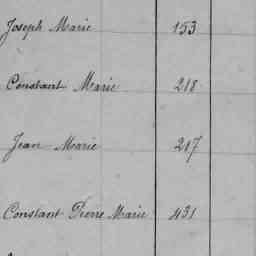 Joseph Marie 153
Constant Marie 218
Jean Marie 217
Constant Pierre Marie 431